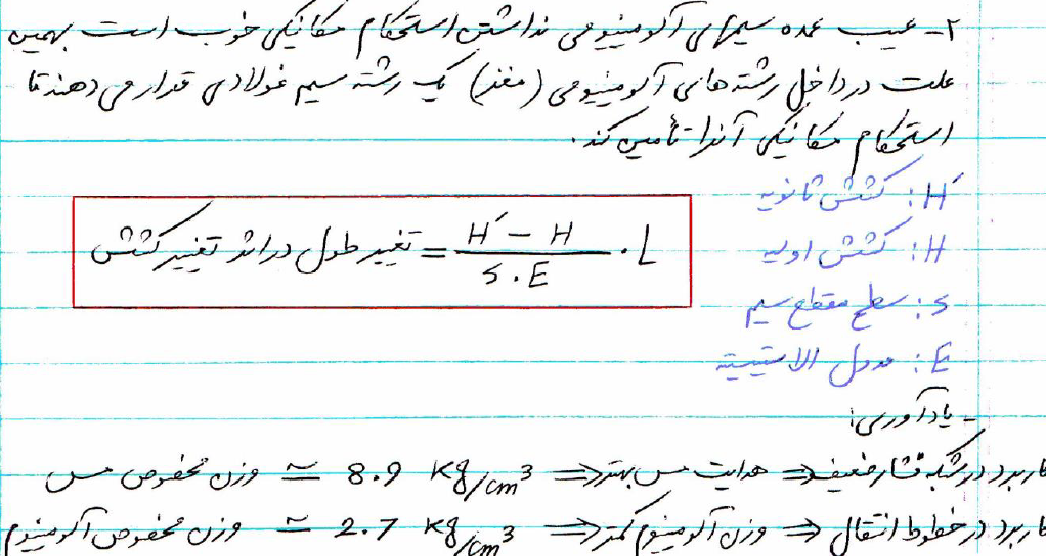 ۲- عیب عمده سیمهای آلومینیومی نداشتن استحکام مکانیکی خوب است بهمین
علت در داخل رشته های آلومینیومی (مغز) یک رشته سیم فولادی قرار می دهند تا
استحکام مکانیکی آنرا تأمین کند.
H′: کشش ثانویه
H: کشش اولیه
تغییر طول در اثر تغییر کشش = (H′ - H) / (S.E) . L
S: سطح مقطع سیم
E: مدول الاستیسیته
- یادآوری:
وزن مخصوص مس ≃ 8.9 Kg/cm³ ⇐ هدایت مس بهتر ⇐ کاربرد در شبکه فشار ضعیف
وزن مخصوص آلومینیوم ≃ 2.7 Kg/cm³ ⇐ وزن آلومینیوم کمتر ⇐ کاربرد در خطوط انتقال